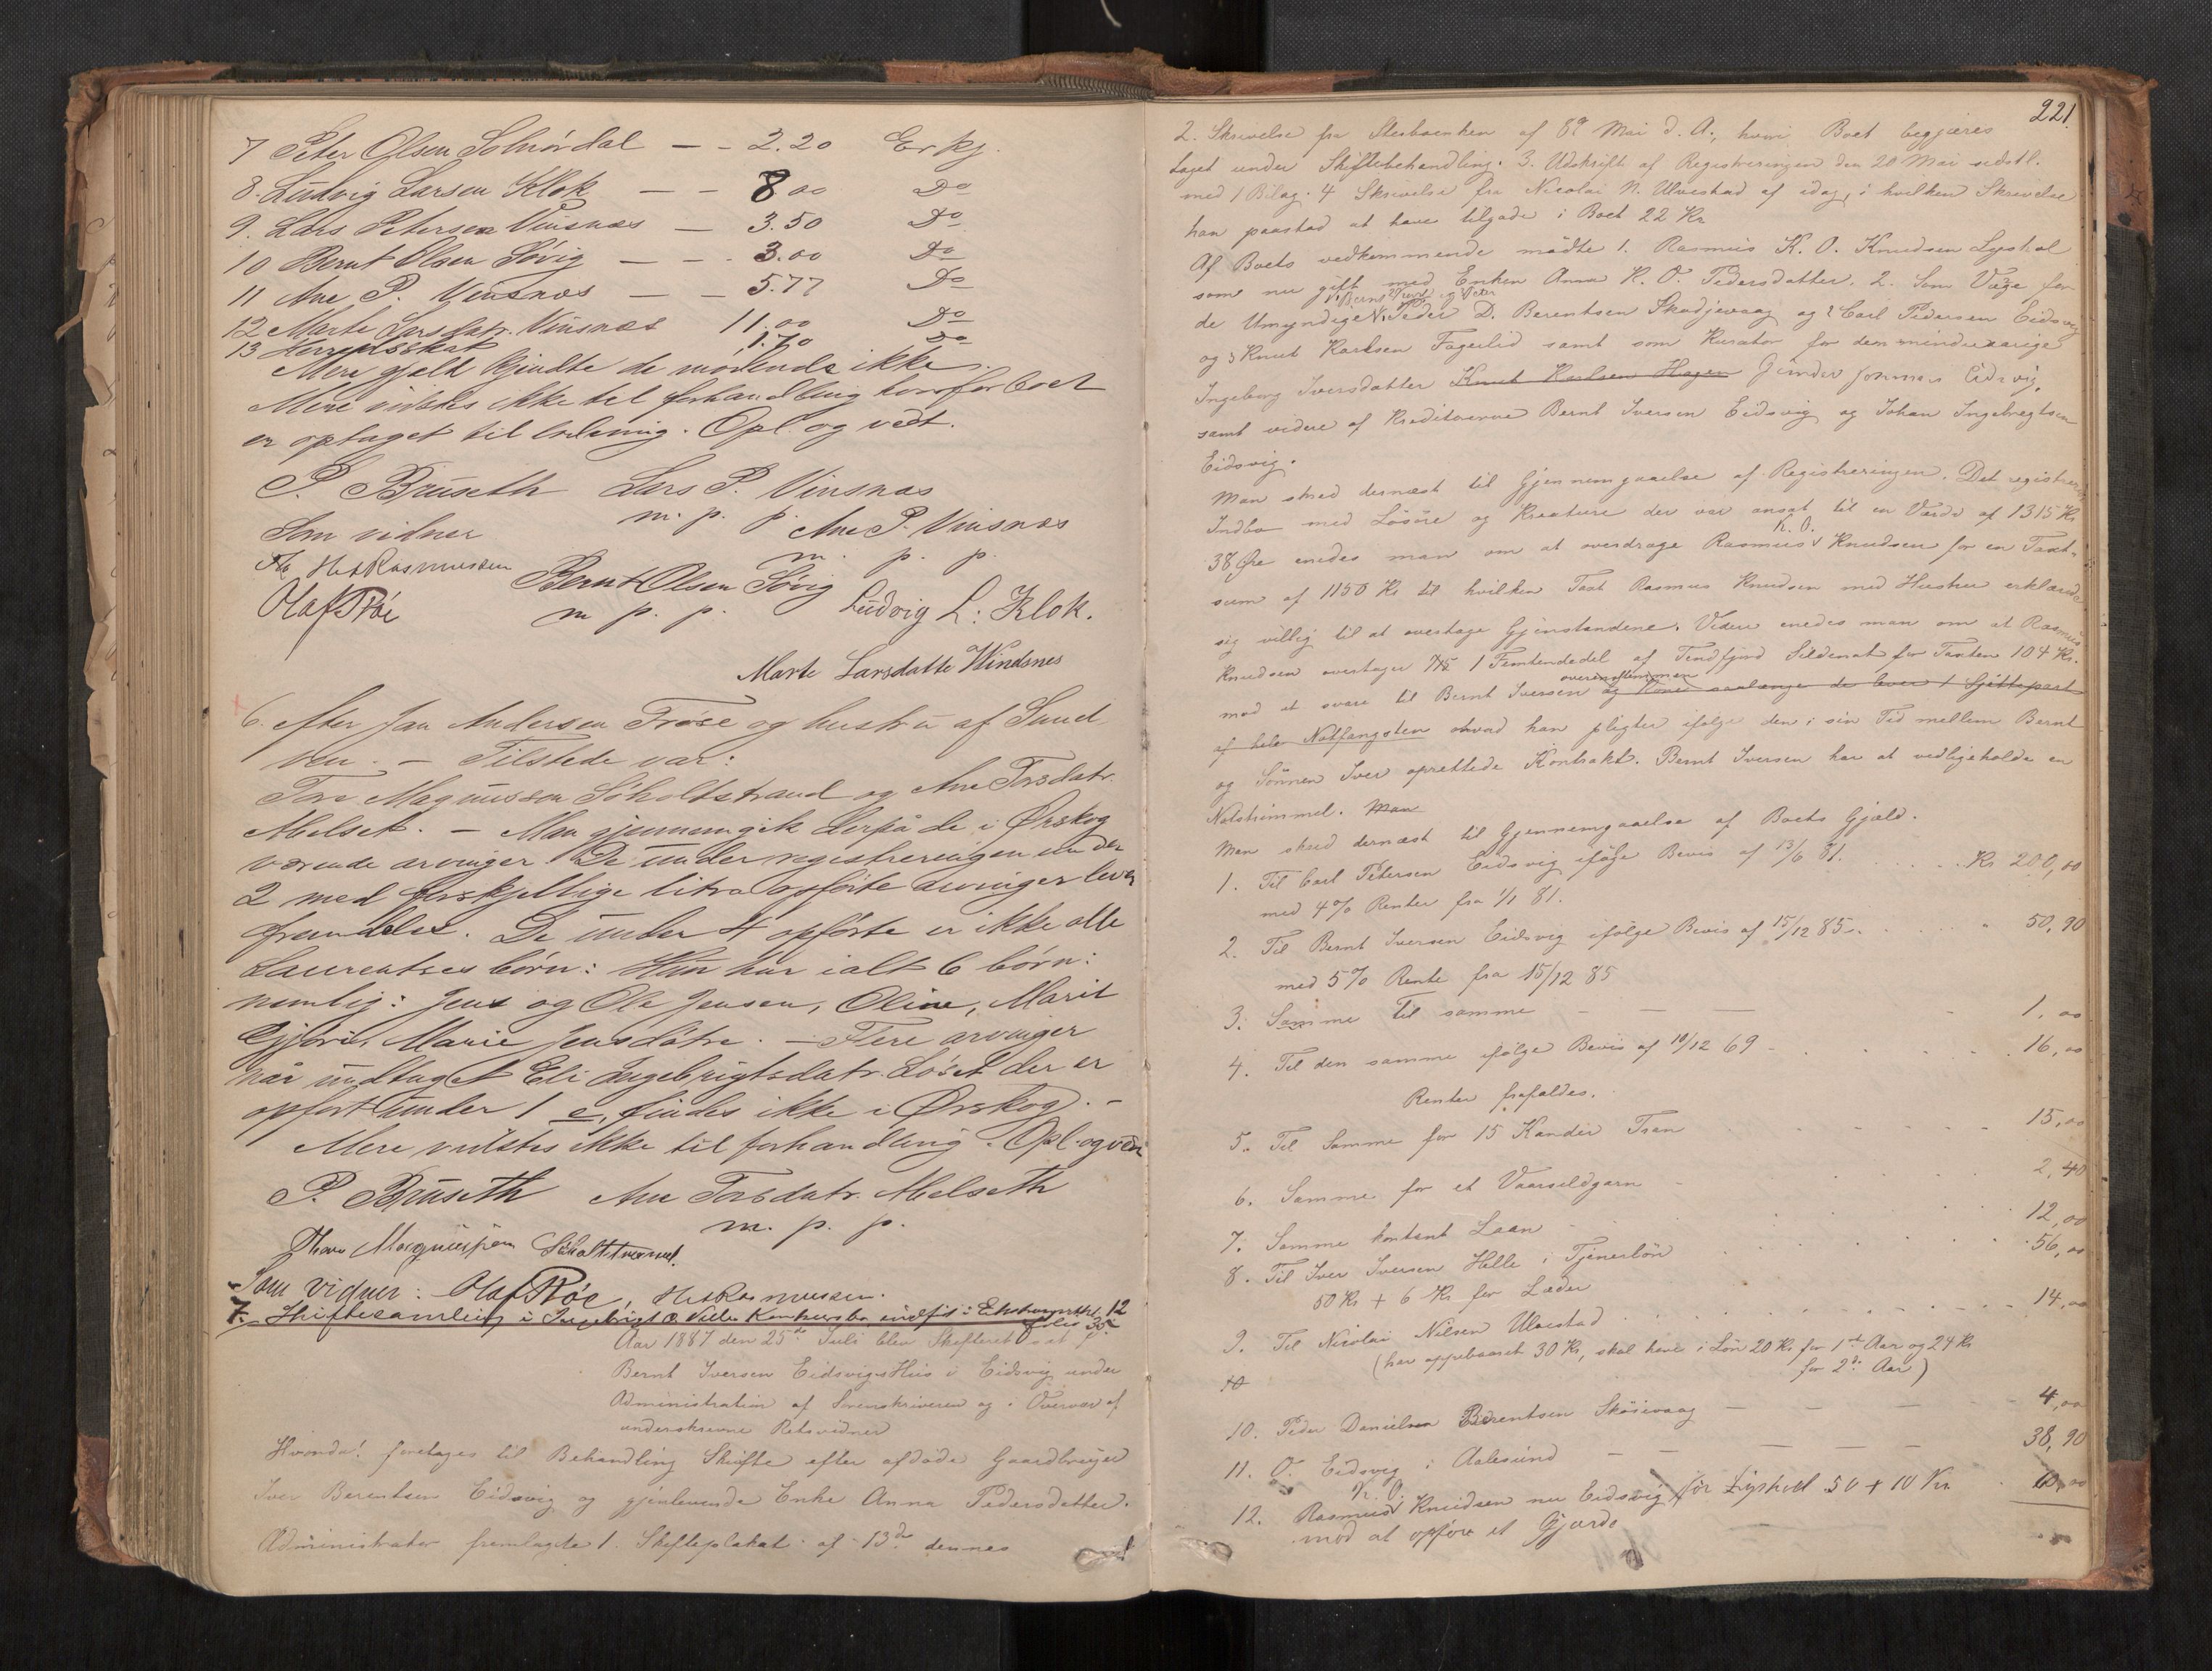 7 Peter Olsen Solnördal — - 2.20 Erkj.
8. Ludvig Larsen Klok — - 8 00 Do
9. Lars Petersen Vinsnæs — 3.50 Do
10 Bernt Olsen Søvig — - - 3.00 Do
11 Ane P. Vinsnæs — - 5.77 Do
12 Marte Larsdatr. Vinsnæs 11.00 Do
13 Herredsskat 1.70 Do
Mere gjæld kjendte de mødende ikke.
Mere vidstes ikke til forhandling hvorfor boet
er optaget til . Opl. og vedt.
P. Bruseth Lars P. Vinsnæs
m. p. p.
Som vidner Ane P. Vinsnæs
m. p. p.
H Rasmussen Bernt Olsen Søvig
Olaf Røe m p. p. Ludvig L: Klok.
Marte Larsdatte Windsnes
6. efter Jan Andersen Frøse og hustru af Sund
ven. — Tilstede var:
Tore Magnussen Søholtstrand og Ane Torsdatr.
Melset. — Man gjennemgik de i Ørskog
værende arvinger De under registreringen under
2 med forskjellige litra opførte arvinger lever
fremdeles. De under 4 opførte er ikke alle
Laurentses börn: Hun har ialt 6 börn:
nemlig: Jens og Ole Jensen, Oline, Marit
Gjöri, Marie Jensdötre. — Flere arvinger
når undtaget Eli Ingebrigtsdatr. Løset der er
opført under 1 e, findes ikke i Ørskog. -
Mere vidstes ikke til forhandling. Opl. og ved
P. Bruseth Ane Torsdatr. Melseth
m. p. p.
Thore Magnussen Søholtstrand.
Som vidner: Olaf Røe, H Rasmussen.
7. Skiftesamling i Ingebrigt O. Konkursbo indført i 12
folio 35
Aar 1887 den 25de Juli blev Skifteret sat i
Bernt Iversen Eidsvigs Hus i Eidsvig under
Administration af Sorenskriveren og i Overvær af
underskrevne Retsvidner
Hvorda! foretages til Behandling Skifte efter afdöde Gaardbruger
Iver Berentsen Eidsvig og gjenlevende Enke Anna Pedersdatter.
Administrator fremlagde 1. Skifteplakat af 13de dennes
221.
2. Skrivelse fra Stervboenken af 8de Mai d. A., hvori Boet begjæres
taget under Skiftebehandling. 3. Udskrift af Registreringen den 20 Mai sidstl.
med 1 Bilag. 4 Skrivelse fra Nicolai N. Ulvestad af idag, i hvilken Skrivelse
han paastod at have tilgode i Boet 22 Kr
Af Boets vedkommende mödte 1. Rasmus K. O. Knudsen Lyshol
som nu gift med Enken Anna K. O. Pedersdatter. 2. Som Værge for
de Umyndige Peder D. Berentsen Skodjevaag og 2 Carl Pedersen Eidsvig
og 3 Knut Karlsen Fagerlid samt som Kurator for den mindreaarige
Ingeborg Iversdatter Knut Karlsen Hagen Eidsvig,
samt videre af Kreditorerne Bernt Iversen Eidsvig og Johan Ingebregtsen
Eidsvig.
Man skred dernæst til Gjennemgaaelse af Registreringen. Det registrerede
Indbo med Lösöre og Kreature der var ansat til en Værdi af 1315 Kr
K. O.
38 Öre enedes man om at overdrage Rasmus Knudsen for en Taxt-
sum af 1150 Kr til hvilken Taxt Rasmus Knudsen med Hustru erklærede
sig villig til at overtage Gjenstandene. Videre enedes man om at Rasmus
Knudsen overtager 1/15 1 Femtendedel af Tendfjord Sildenot for Taxten 104 Kr.
overenstemmen
mod at svare til Bernt Iversen og Kone saalænge de lever 1 Sjöttepart
af hele Notfangsten hvad han pligter ifölge den i sin Tid mellem Bernt
og Sönnen Iver oprettede Kontrakt. Bernt Iversen har at vedligeholde en
Notstrimmel. Man
Man skred dernæst til Gjennemgaaelse af Boets Gjæld.
1. Til Carl Petersen Eidsvig ifölge Bevis af 13/6 81. . . . . Kr 200,00
med 4% Renter fra 1/1 81.
2. Til Bernt Iversen Eidsvig ifölge Bevis af 15/12 85 . . . " 50,90
med 5% Rente fra 15/12 85
3. Samme til samme — — — - 1,00
4. Til den samme ifölge Bevis af 10/12 69 - . . . . 16,00
Renter frafaldes.
5. Til Samme for 15 Kander Tran . . . . 15,00
6. Samme for et Vaarsildgarn - . . . 2,40
7. Samme kontant Laan . . . . 12,00
8. Til Iver Iversen Helle i Tjenerlön . . . . 56,00
50 Kr + 6 Kr for Læder
9. Til Nicolai Nilsen Ulvestad . . . . 14,00
(har oppebaaret 30 Kr, skal have i Lön 20 Kr for 1ste Aar og 24 Kr
for 2det Aar)
10
10. Peder Danielsen Berentsen Sköievaag — — — — 4,00
11. O. Eidsvig i Aalesund — — — — 38,90
K. O.
12. Rasmus Knudsen nu Eidsvig för Lyshol 50 + 10 Kr. 60,00
mod at opföre et Gjærde